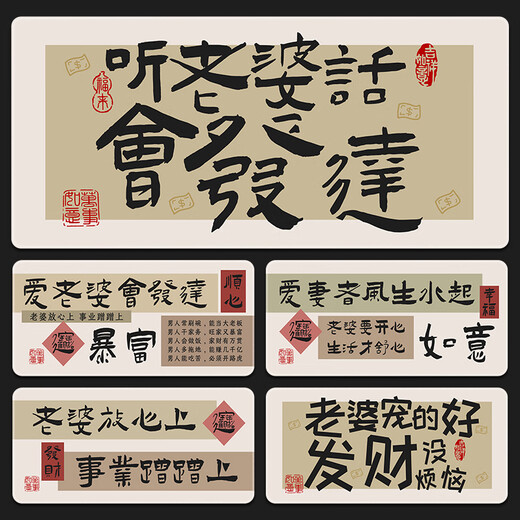 听老婆話
會發達
吉祥如意
萬事如意
爱老婆會發達
順心
老婆放心上 事业蹭蹭上
暴富
男人常刷碗,能当大老板
男人干家务,旺家又暴富
男人会做饭,家财有万贯
男人多拖地,能赚几千亿
男人能吃苦,必须开路虎
萬事如意
爱妻者風生水起
幸福
老婆要开心
生活才舒心
如意
萬事如意
老婆放心上
發財
事業蹭蹭上
萬事如意
老婆宠的好
发财没
烦恼
萬事如意